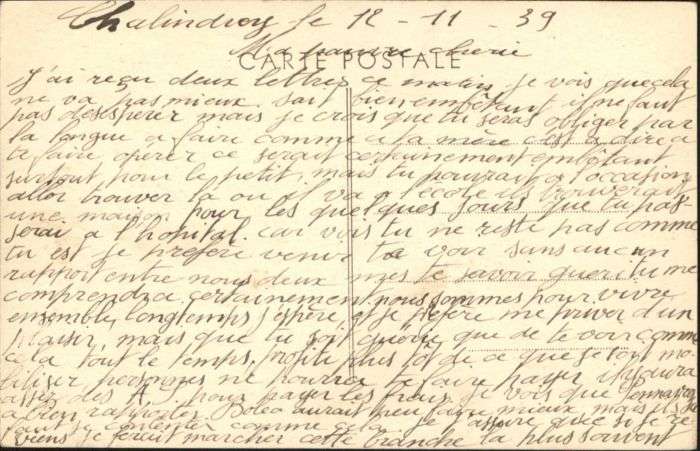 Chalindrey le 12 - 11 - 39
Ma pauvre cherie
CARTE POSTALE
J'ai reçu deux lettres ce matin, je vois que cela
ne va pas mieux. sait bien embêtant il ne faut
pas desésperer mais je crois que tu seras obliger par
la longue a faire comme a ta mère c'est a dire a
te faire opérer ce serait certainement embetant
surtout pour le petit, mais tu pourrait a l'occasion
aller trouver la ou il va a l'école ils trouverait
une maison pour les quelques jours que tu pas-
serai a l'hopital. car vois tu ne reste pas comme
tu est je prefere venir te voir sans aucun
rapport entre nous deux mes te savoir guerit tu me
comprendra certainement nous sommes pour vivre
ensemble longtemps j'espère et je prefere me priver d'un
plaisir, mais que tu soit guerie que de te voir comme
cela tout le temps. profite plus tot de ce que je soit mo-
biliser personnes ne pourra te faire payer il y aura
assez des A.S. pour payer les frais. Je vois que
a bien rapportes aurait peu faire mieux mais il
faut se contenter comme cela. Je t'assure que si je re-
viens je ferait marcher cette branche la plus souvent